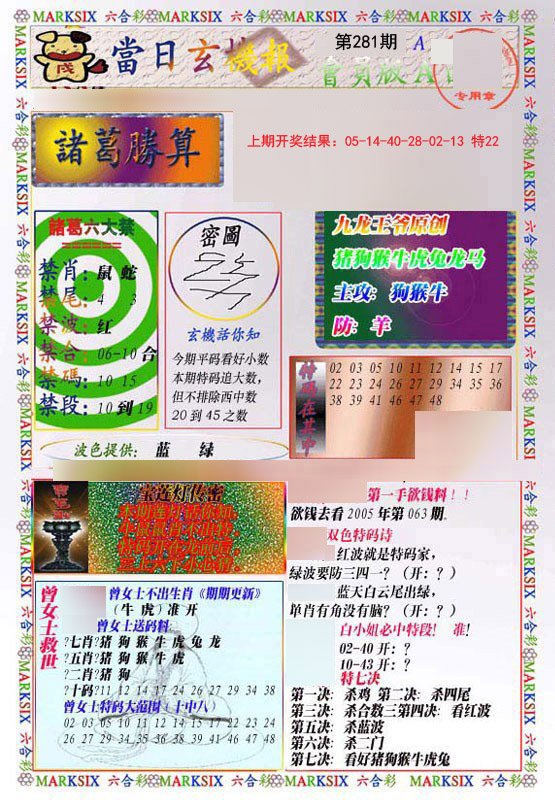 MARKSIX 六合彩 MARKSIX 六合彩 MARKSIX 六合彩 MARKSIX 六合彩
當日玄機報
第281期 A
會員版A
专用章
諸葛勝算
上期开奖结果：05-14-40-28-02-13 特22
諸葛六大禁
禁肖：鼠 蛇
禁尾：4 3
禁波：红
禁合：06-10 合
禁碼：10 15
禁段：10 到 19
密圖
玄機話你知
今期平码看好小数
本期特码追大数，
但不排除西中数
20 到 45 之数
九龙王爷原创
猪狗猴牛虎兔龙马
主攻：狗猴牛
防：羊
特码在其中
02 03 05 10 11 12 14 15 17
22 23 24 26 27 29 34 35 36
38 39 41 46 47 48
波色提供：蓝 绿
宝莲灯传密
曾女士救世
曾女士不出生肖《期期更新》
（牛 虎）准 开
曾女士送码料
?七肖?猪 狗 猴 牛 虎 兔 龙
?五肖?猪 狗 猴 牛 虎
?二肖?猪 狗
?十码?11 12 14 17 24 26 27 29 34 38
曾女士特码大范围（十中八）
02 03 05 10 11 12 14 15 17 22 23 24
26 27 29 34 35 36 38 39 41 46 47 48
第一手欲钱料！！
欲钱去看 2005 年第 063 期。
双色特码诗
红波就是特码家，
绿波要防三四一？（开：？）
蓝天白云尾出绿，
单肖有角没有脑？（开：？）
白小姐必中特段！ 准!
02-40 开：？
10-43 开：？
特七决
第一决：杀鸡 第二决：杀四尾
第三决：杀合数三第四决：看红波
第五决：杀蓝波
第六决：杀二门
第七决：看好猪狗猴牛虎兔
MARKSIX 六合彩 MARKSIX 六合彩 MARKSIX 六合彩 MARKSIX 六合彩